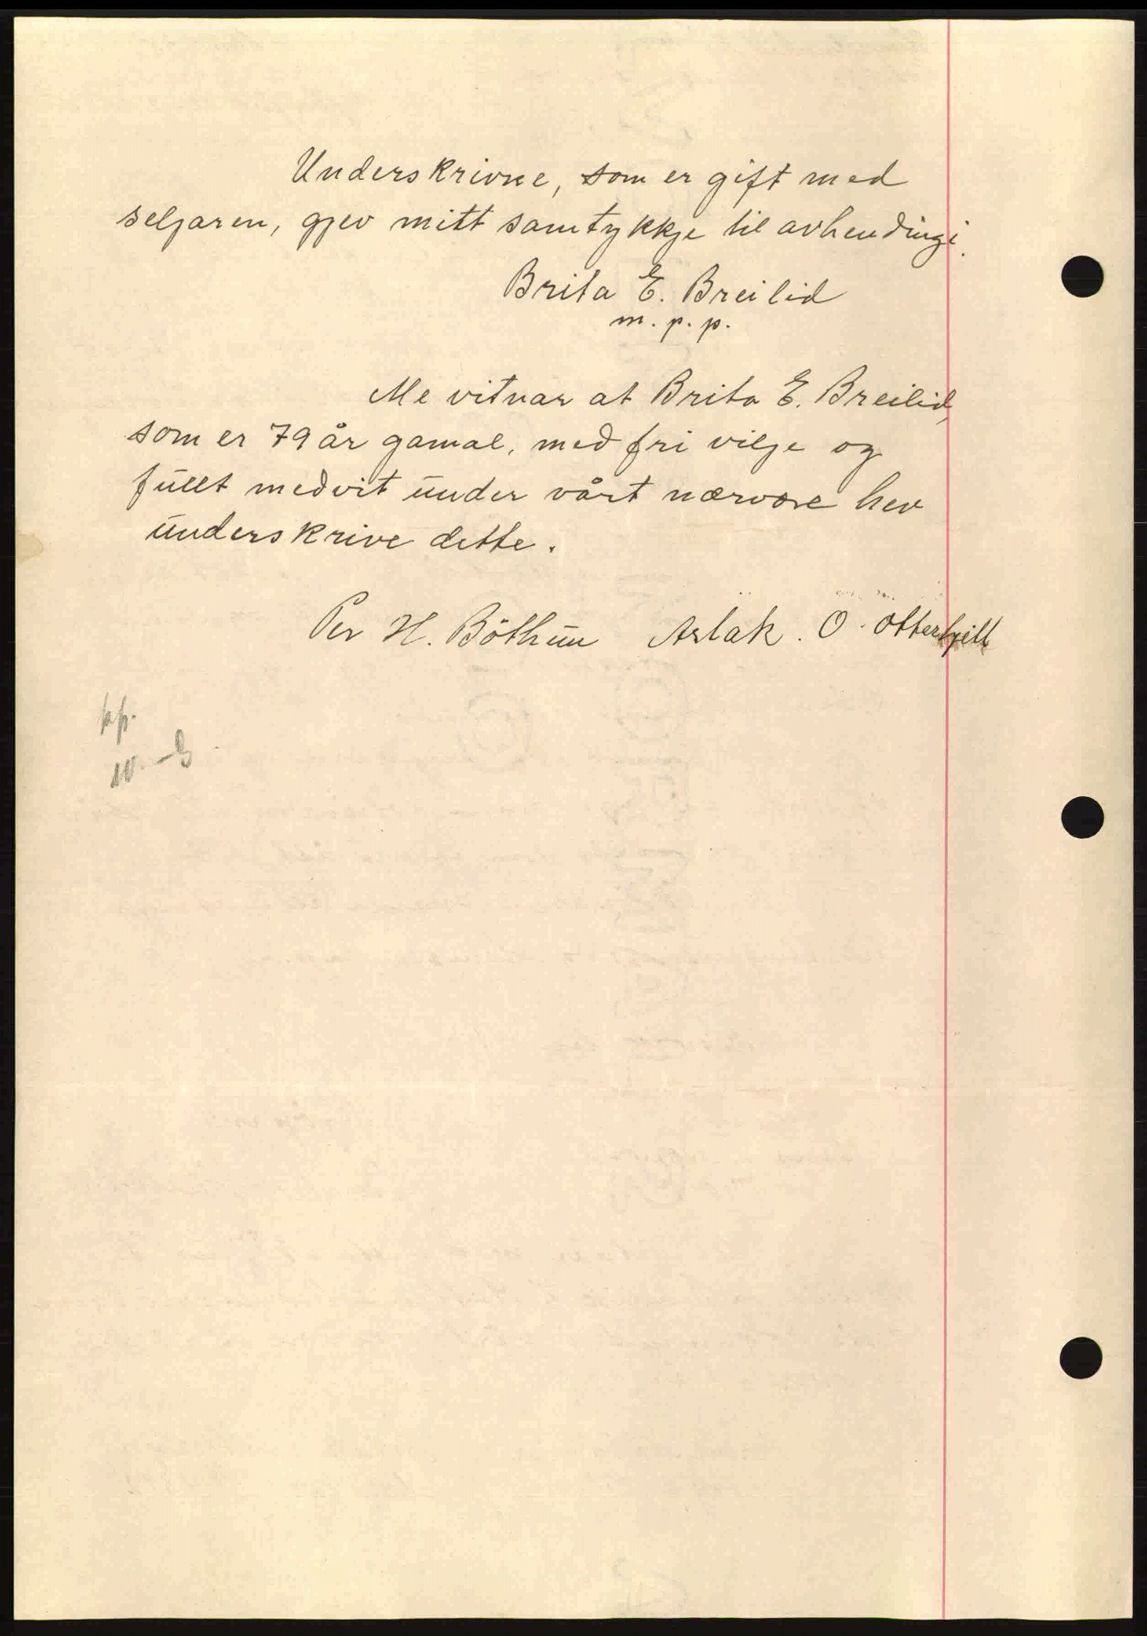 Underskrivne, som er gift med
seljaren, gjev mitt samtykkje til avhendingi.
Brita E. Breilid
m. p. p.
Me vitnar at Brita E. Breilid,
som er 79 år gamal, med fri vilje og
fullt medvit under vårt nærvære hev
underskrive dette.
Per H. Böthun Aslak. O.